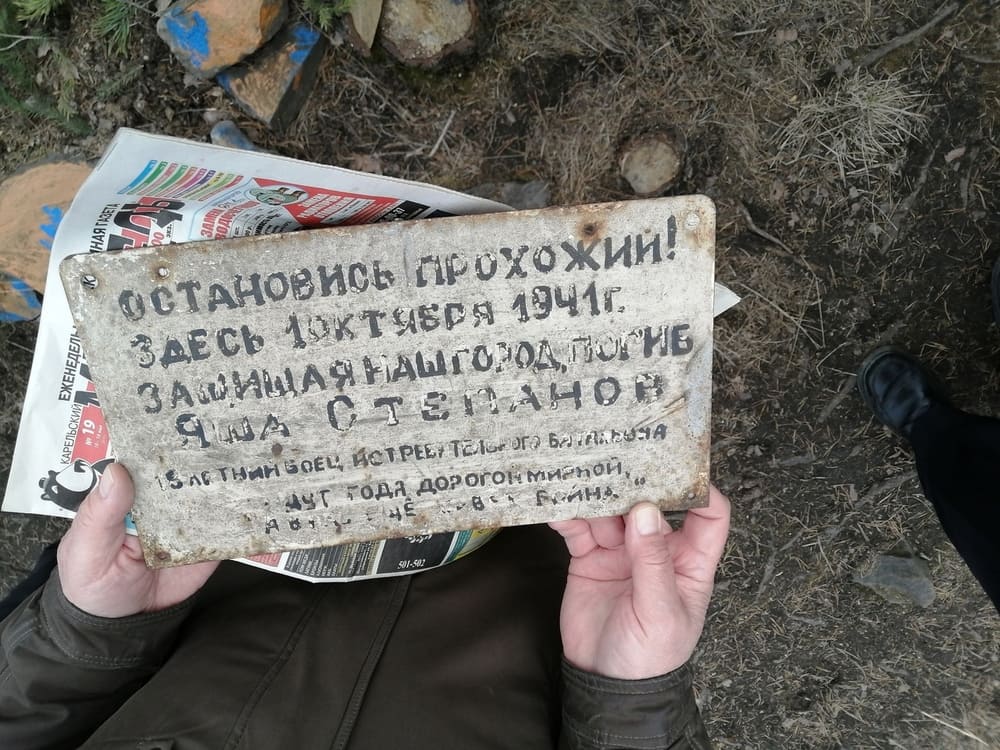 ОСТАНОВИСЬ ПРОХОЖИЙ!
ЗДЕСЬ 1 ОКТЯБРЯ 1941 г.
ЗАЩИЩАЯ НАШ ГОРОД, ПОГИБ
ЯША СТЕПАНОВ
ЛЕТНИЙ БОЕЦ ИСТРЕБИТЕЛЬНОГО БАТАЛЬОНА
ГОДА ДОРОГОЙ МИРНОЙ,
ВОЙНА"
ЕЖЕНЕДЕЛЬ
НАЯ ГАЗЕТА
КАРЕЛЬСКИЙ
№ 19
501-502